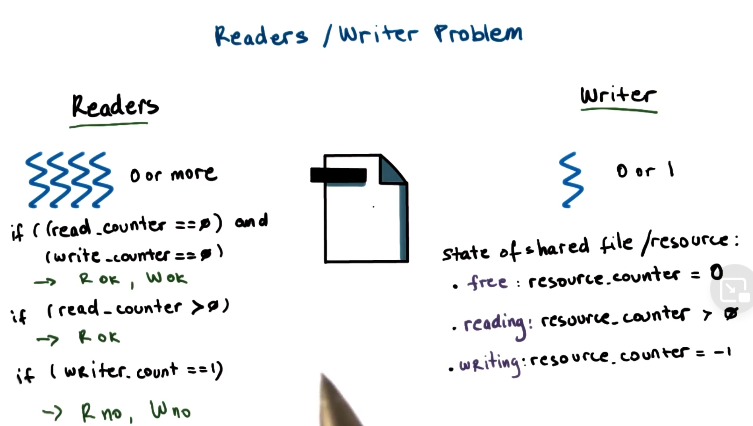 Readers / Writer Problem
Readers
0 or more
if ((read_counter == 0) and
(write_counter == 0)
→ R OK, W OK
if (read_counter > 0)
→ R OK
if (writer_count == 1)
→ R no, W no
Writer
0 or 1
state of shared file / resource:
• free: resource_counter = 0
• reading: resource_counter > 0
• writing: resource_counter = -1